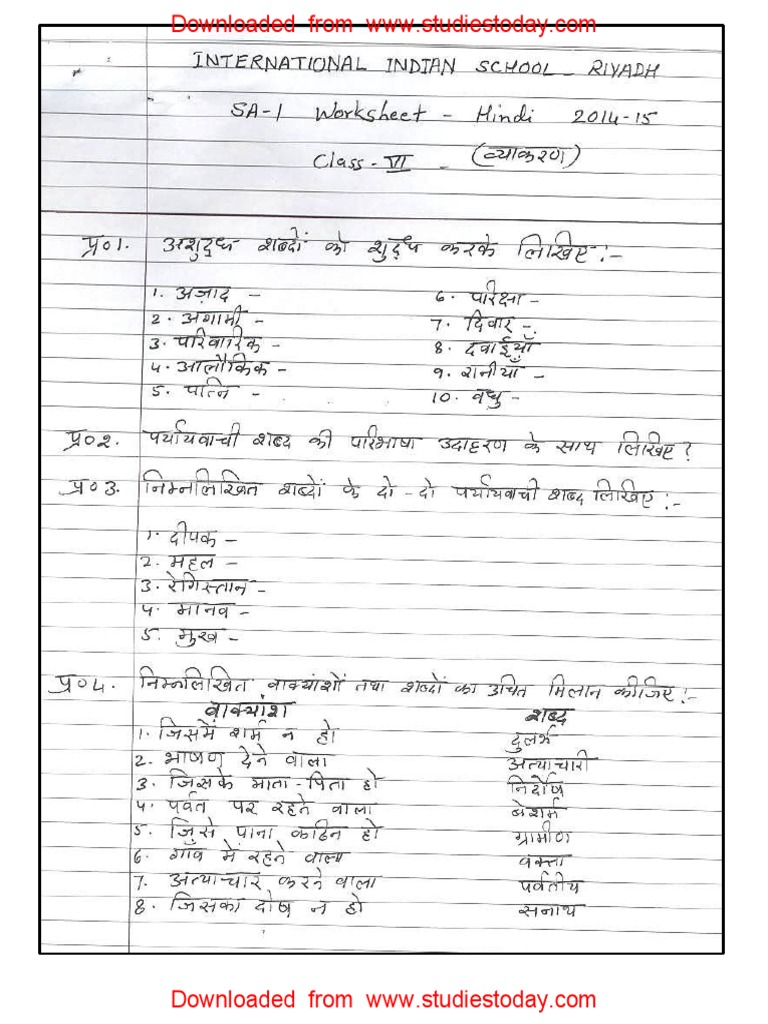 Downloaded from www.studiestoday.com
INTERNATIONAL INDIAN SCHOOL - RIYADH
SA-1 Worksheet - Hindi 2014-15
Class - VI - (व्याकरण)
प्र०1. अशुद्ध शब्दों को शुद्ध करके लिखिए :-
1. अज़ाद -
2. अगामी -
3. परिवारिक -
4. आलौकिक -
5. पत्नि -
6. परिक्षा -
7. दिवार -
8. दवाईयाँ
9. रानीयाँ -
10. वधु -
प्र०2. पर्यायवाची शब्द की परिभाषा उदाहरण के साथ लिखिए ?
प्र०3. निम्नलिखित शब्दों के दो - दो पर्यायवाची शब्द लिखिए :-
1. दीपक -
2. महल -
3. रेगिस्तान -
4. मानव -
5. मुख -
प्र०4. निम्नलिखित वाक्यांशों तथा शब्दों का उचित मिलान कीजिए :-
वाक्यांश शब्द
1. जिसमें शर्म न हो दुर्लभ
2. भाषण देने वाला अत्याचारी
3. जिसके माता - पिता हो निर्दोष
4. पर्वत पर रहने वाला बेशर्म
5. जिसे पाना कठिन हो ग्रामीण
6. गाँव में रहने वाला वक्ता
7. अत्याचार करने वाला पर्वतीय
8. जिसका दोष न हो सनाथ
Downloaded from www.studiestoday.com